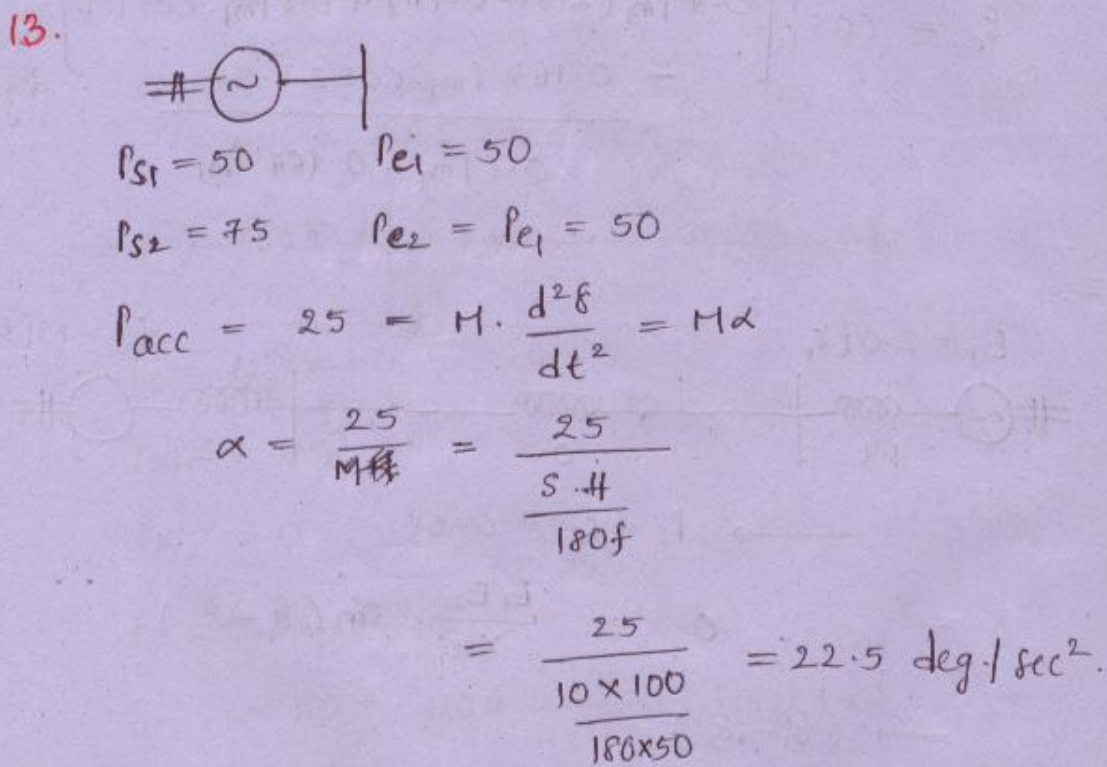 13.
~
Ps1 = 50 Pe1 = 50
Ps2 = 75 Pe2 = Pe1 = 50
Pacc = 25 = M. d²δ/dt² = Mα
α = 25/M = 25/(S.H/180f)
= 25/(10 × 100/180×50) = 22.5 deg./sec².